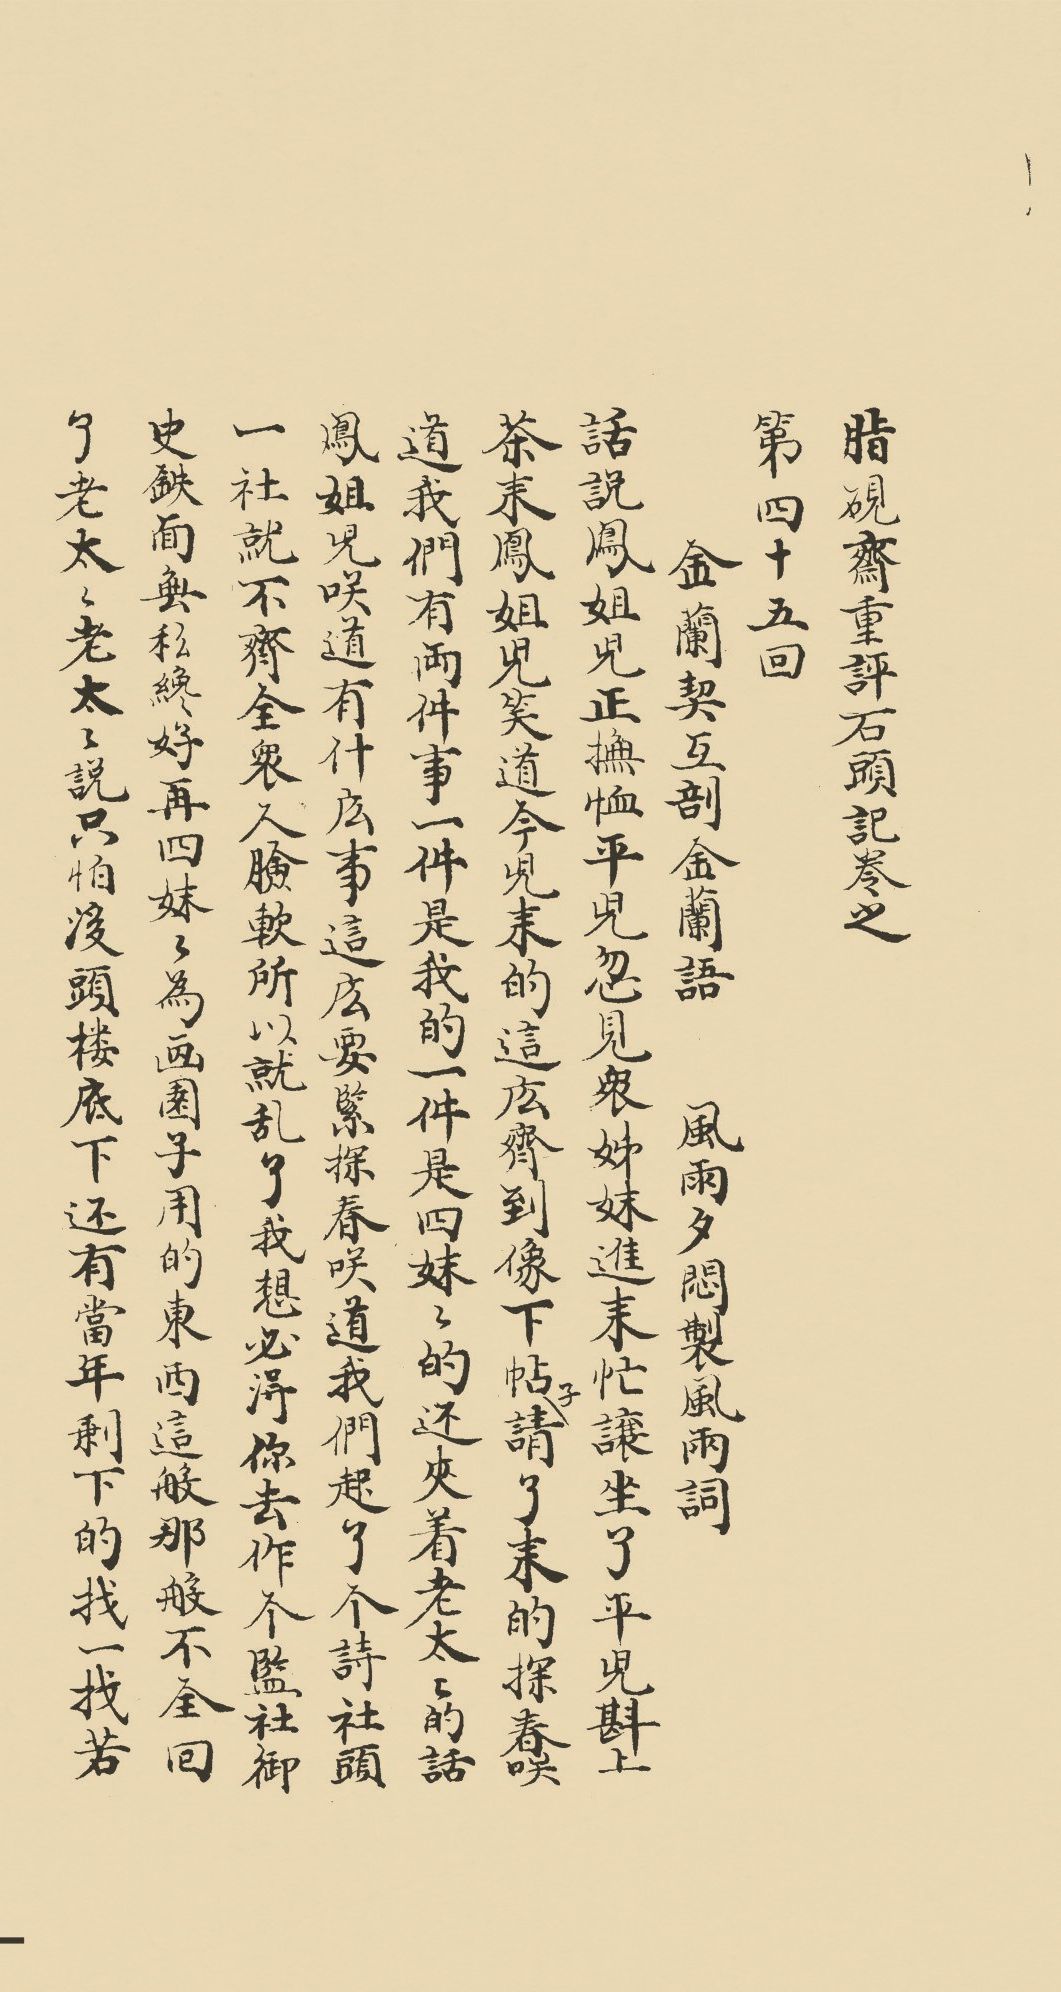 脂硯齋重評石頭記卷之
第四十五回
金蘭契互剖金蘭語　風雨夕悶製風雨詞
話説鳳姐児正撫恤平児忽見衆姊妹進来忙讓坐了平児斟上
茶来鳳姐児笑道今児来的這広齊到像下帖子請了来的探春咲
道我們有両件事一件是我的一件是四妹〻的还夾着老太〻的話
鳳姐児咲道有什広事這広要緊探春咲道我們起了个詩社頭
一社就不齊全衆人臉軟所以就乱了我想必淂你去作个監社御
史鉄面無私纔好再四妹〻為画園子用的東西這般那般不全回
了老太〻老太〻説只怕後頭楼底下还有當年剩下的找一找若